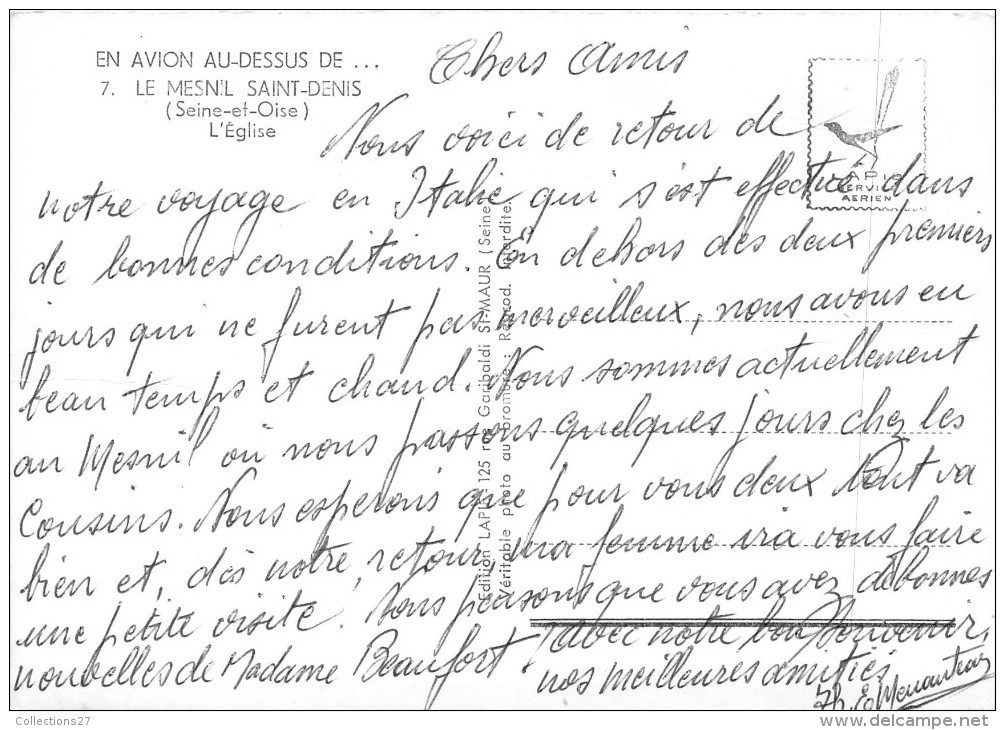 EN AVION AU-DESSUS DE ...
7. LE MESNIL SAINT-DENIS
(Seine-et-Oise)
L'Église
LAPIE
SERVICE
AERIEN
Chers Amis
Nous voici de retour de
notre voyage en Italie qui s'est effectué dans
de bonnes conditions. En dehors des deux premiers
jours qui ne furent pas merveilleux, nous avons eu
beau temps et chaud. Nous sommes actuellement
au Mesnil où nous passons quelques jours chez les
Cousins. Nous esperons que pour vous deux tout va
bien et, dès notre retour, ma femme ira vous faire
une petite visite. Nous pensons que vous avez de bonnes
nouvelles de Madame Beaufort.
avec notre bon Souvenir,
nos meilleures amitiés
Edition LAPIE 125 rue Garibaldi ST-MAUR (Seine)
Véritable photo au bromure : Reprod. Interdite.
Collections27
www.delcampe.net